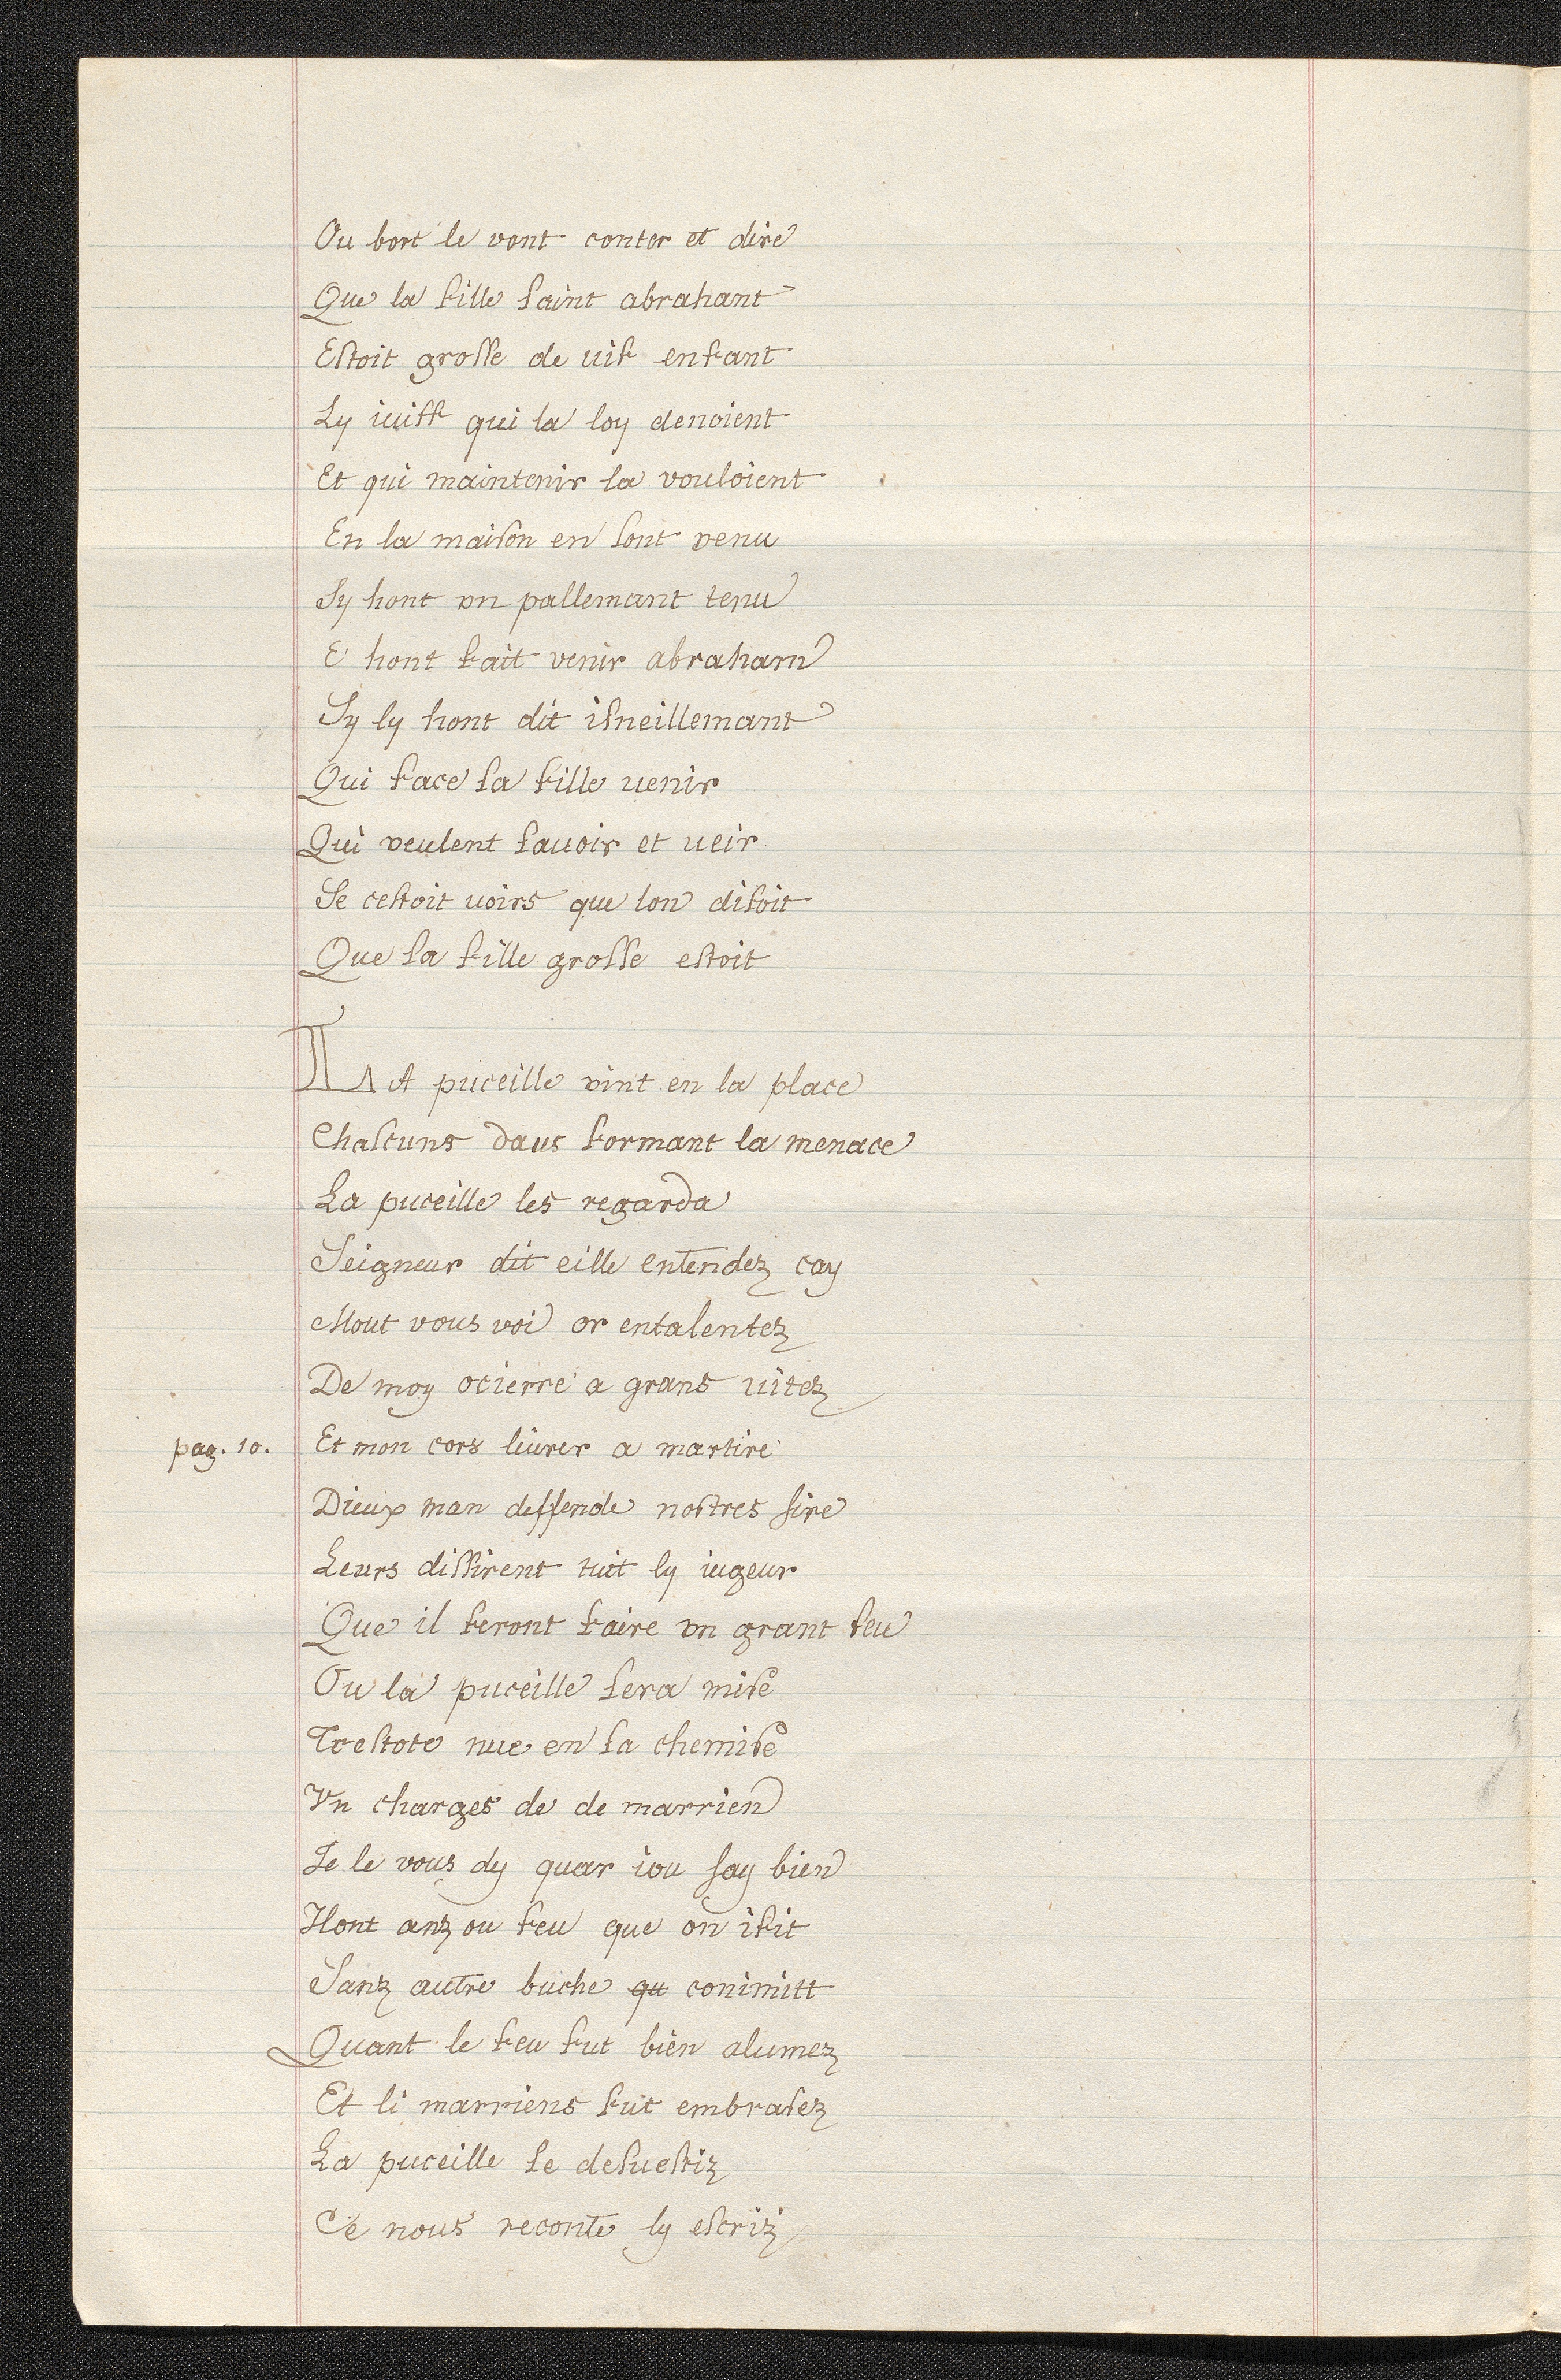 Ou bort le vont conter et dire
Que la fille saint abrahant
Estoit grosse de uif enfant
Ly iuisf qui la loy denoient
Et qui maintenir la vouloient
En la maison en sont venu
Sy hont vn pallemant tenu
E hont fait venir abraham
Sy ly hont dit isneillemant
Qui face sa fille uenir
Qui veulent sauoir et ueir
Se cestoit uoirs que lon disoit
Que sa fille grosse estoit
LA puceille vint en la place
Chascuns daus formant la menace
La puceille les regarda
Seigneur dit eille entendez cay
Mout vous voi or entalentez
De moy ocierre a grans uitez
pag. 10. Et mon cors liurer a martire
Dieux man deffende nostres sire
Leurs dissirent tuit ly iugeur
Que il feront faire vn grant feu
Ou la puceille sera mise
Trestote nue en sa chemise
Vn charges de de marrien
Je le vous dy quar iou say bien
Hont anz ou feu que on ifit
Sanz autre buche qu conimitt
Quant le feu fut bien alumez
Et li marriens fut embrasez
La puceille se desuestiz
Ce nous reconte ly escriz